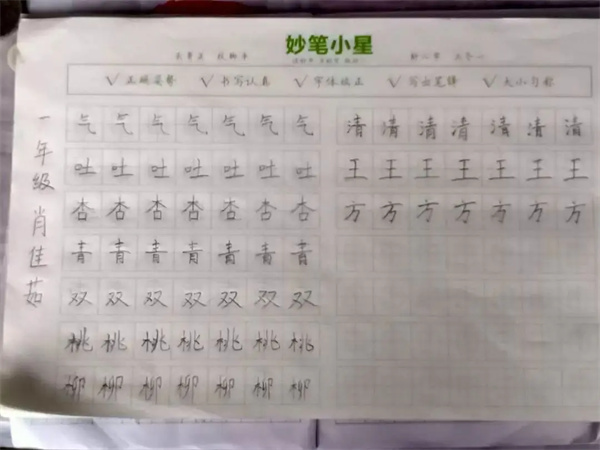 妙笔小星
正确姿势 书写认真 字体端正 写出笔锋 大小匀称
一年级 肖佳茹
气气气气气气气
吐吐吐吐吐吐吐
杏杏杏杏杏杏杏
青青青青青青青
双双双双双双双
桃桃桃桃桃桃桃
柳柳柳柳柳柳柳
清清清清清清清
王王王王王王王
方方方方方方方